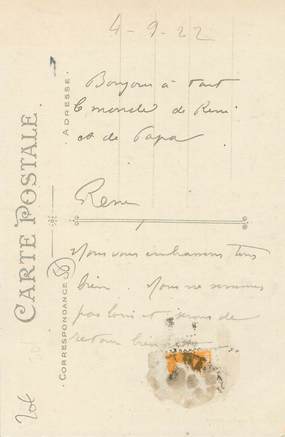 4-9-22
Bonjour à tout
le monde de René
et de Papa
René
Nous vous embrassons tous
bien. Nous ne sommes
pas loin et serons de
retour bientôt
CARTE POSTALE
ADRESSE
CORRESPONDANCE